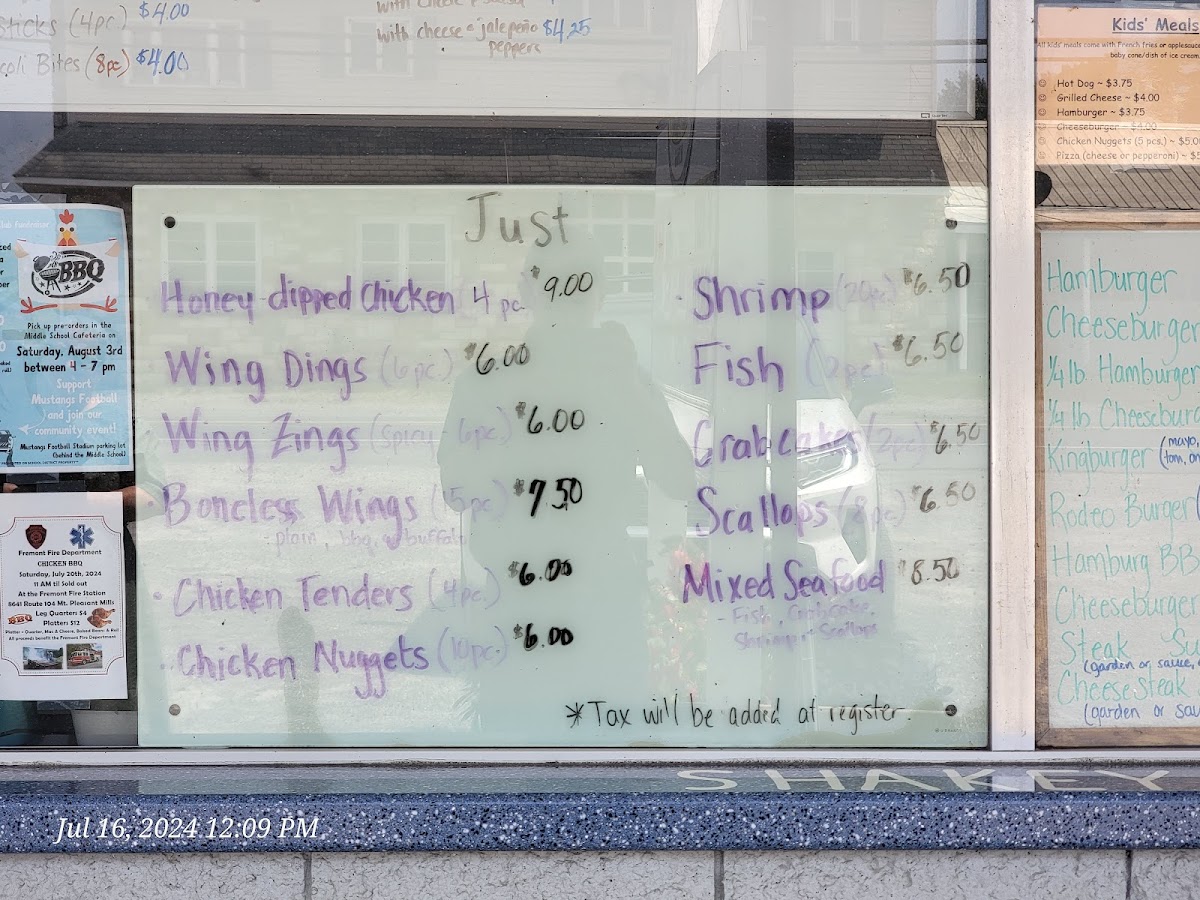 sticks (4pc) $4.00
Bites (8pc) $4.00
with cheese & jalepeño $4.25
peppers
Kids' Meals
All kids meals come with French fries or applesauce
baby cone/dish of ice cream
Hot Dog ~ $3.75
Grilled Cheese ~ $4.00
Hamburger ~ $3.75
Cheeseburger ~ $4.00
Chicken Nuggets (5 pcs.) ~ $5.0
Pizza (cheese or pepperoni) ~ $5
BBQ
Pick up pre-orders in the
Middle School Cafeteria on
Saturday, August 3rd
between 4 - 7 pm
Support
Mustangs Football
and join our
community event!
Mustangs Football Stadium parking lot
(behind the Middle School)
Fremont Fire Department
CHICKEN BBQ
Saturday, July 20th, 2024
11 AM til Sold out
At the Fremont Fire Station
8641 Route 104 Mt. Pleasant Mills
BBQ
Leg Quarters $4
Platters $12
Platter - Quarter, Mac & Cheese, Baked Beans & Roll
All proceeds benefit the Fremont Fire Department
Just
Honey-dipped Chicken 4 pc $9.00
Wing Dings (6pc.) $6.00
Wing Zings (spicy - 6pc) $6.00
Boneless Wings (5pc) $7.50
- plain, bbq, or buffalo
Chicken Tenders (4pc.) $6.00
Chicken Nuggets (10pc.) $6.00
Shrimp (20pc) $6.50
Fish (2pc) $6.50
Crab cakes (2pc) $6.50
Scallops (8pc) $6.50
Mixed Seafood $8.50
- Fish, Crabcake,
Shrimp & Scallops
*Tax will be added at register.
Hamburger
Cheeseburger
1/4 lb Hamburger
1/4 lb Cheesebur
Kingburger (mayo,
tom, on
Rodeo Burger
Hamburg BB
Cheeseburger
Steak Su
(garden or sauce,
Cheesesteak
(garden or sau
SHAKEY
Jul 16, 2024 12:09 PM